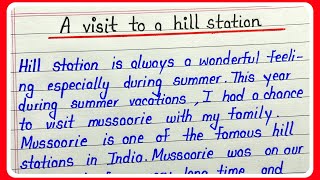 A visit to a hill station
Hill station is always a wonderful feeli-
ng especially during summer. This year
during summer vacations, I had a chance
to visit mussoorie with my family.
Mussoorie is one of the famous hill
stations in India. Mussoorie was on our
long time and